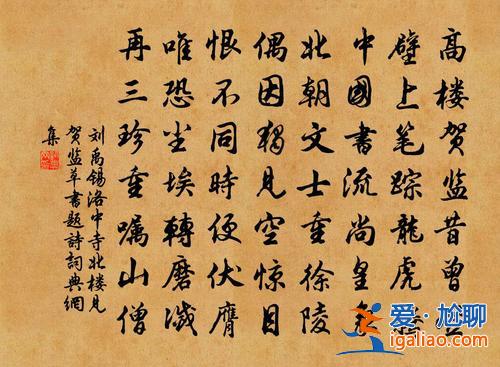 高楼贺监昔曾
壁上笔踪龙虎腾
中國書流尚皇象
北朝文士重徐陵
偶因獨見空惊目
恨不同時便伏膺
唯恐尘埃轉磨滅
再三珍重嘱山僧
刘禹锡洛中寺北楼見
贺监草書題詩詞典網
集
爱·尬聊
igaliao.com